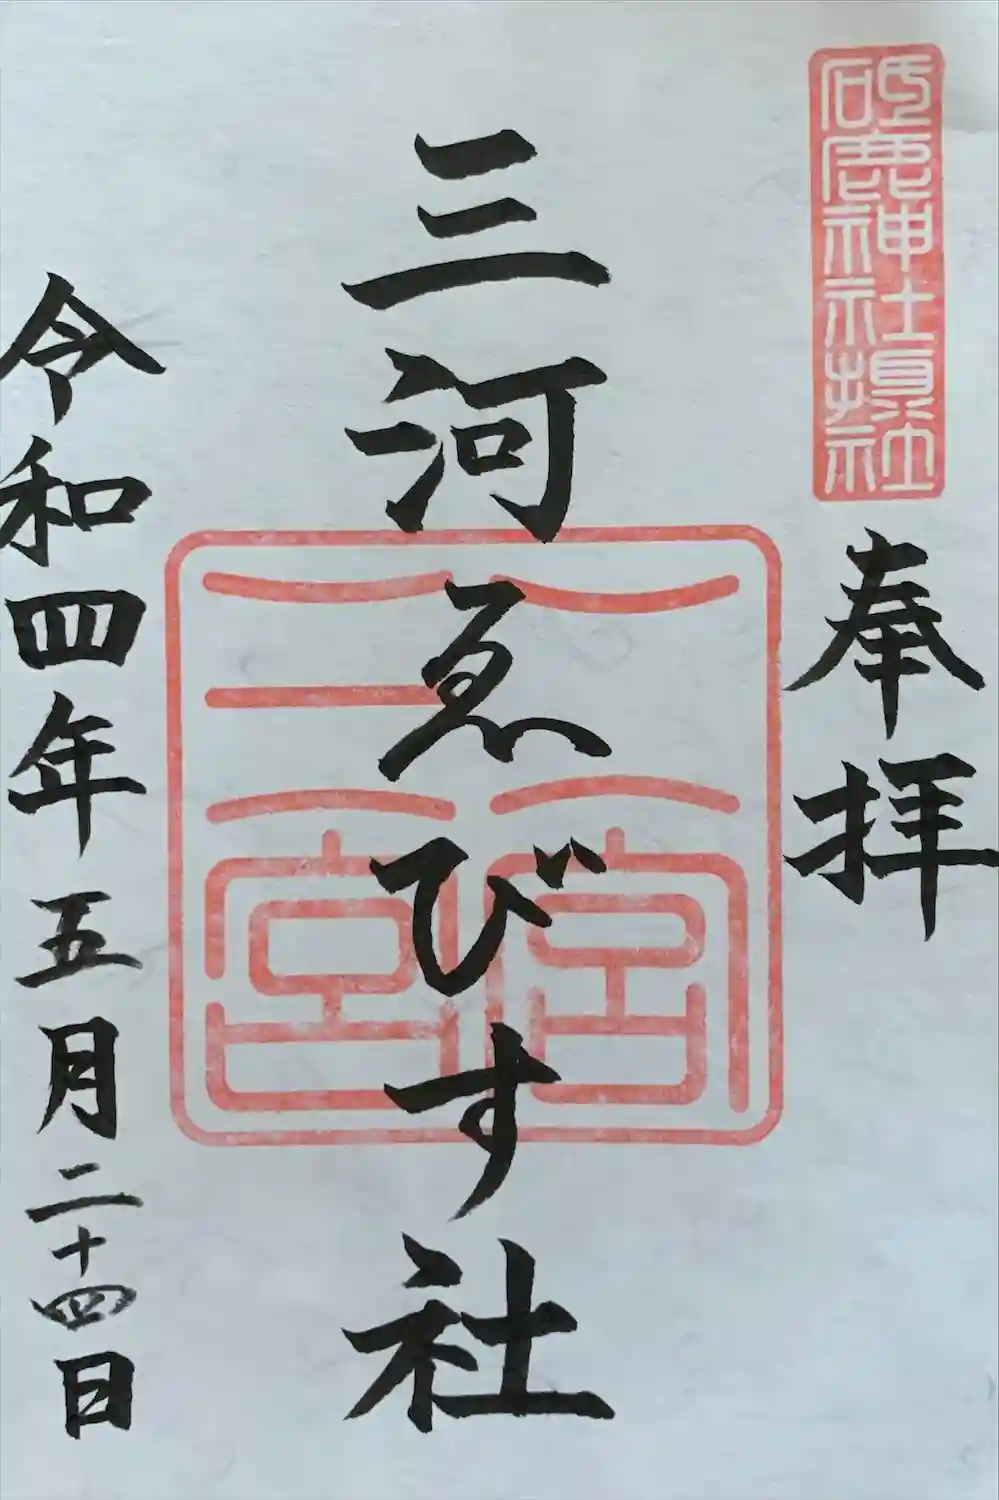 砥鹿神社境内社
奉拝
三河ゑびす社
令和四年五月二十四日